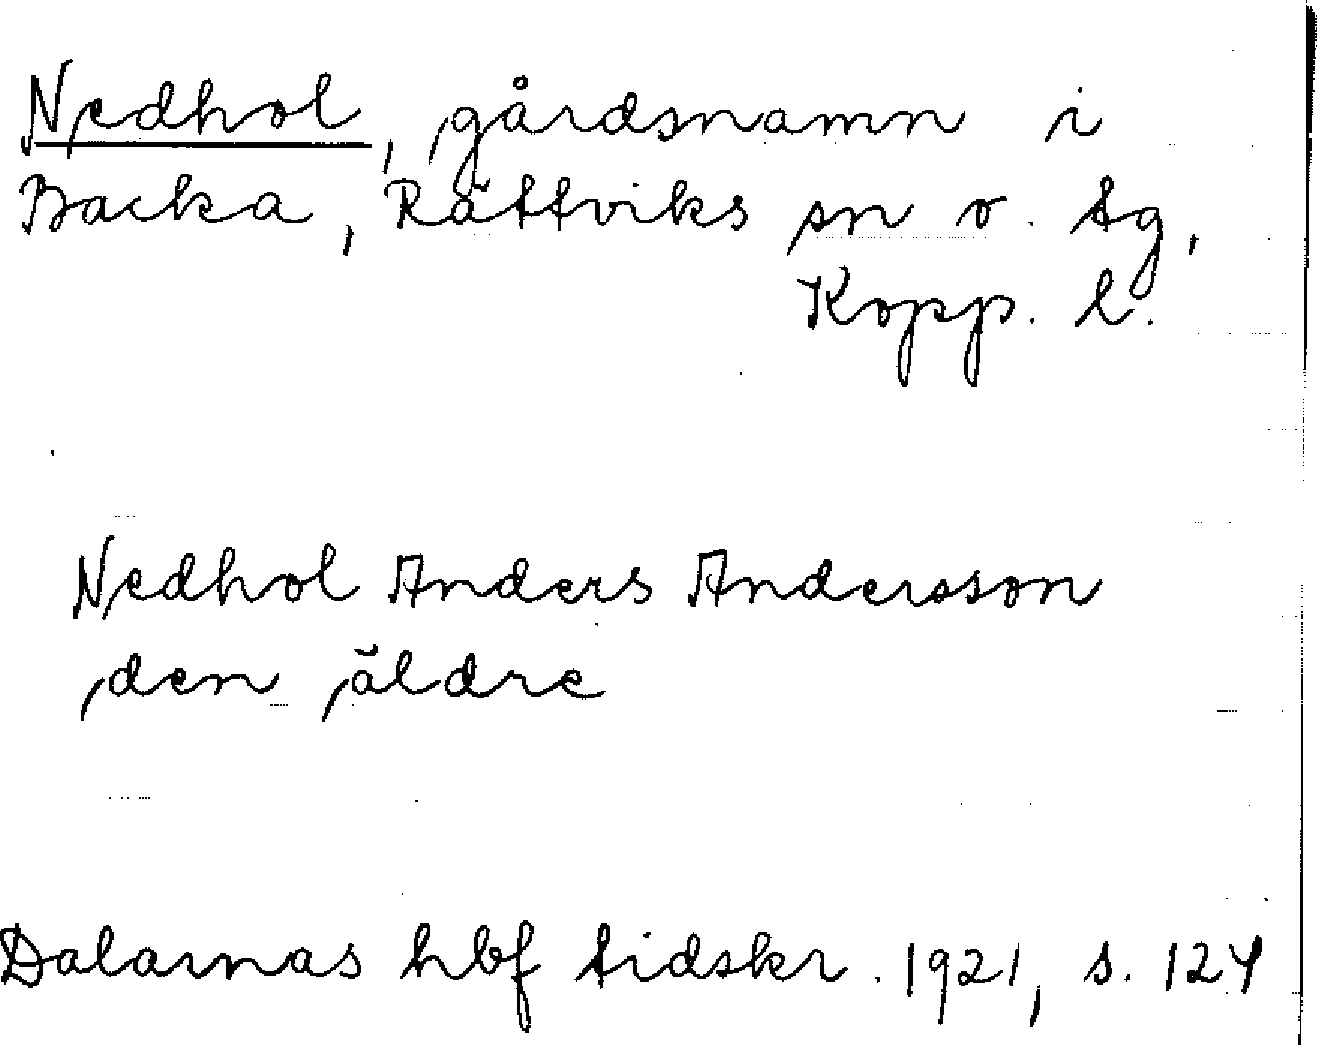 Nedhol, gårdsnamn i
Backa, Rättviks sn o. tg,
Kopp. l.
Nedhol Anders Andersson
den äldre
Dalarnas hbf tidskr. 1921, s. 124